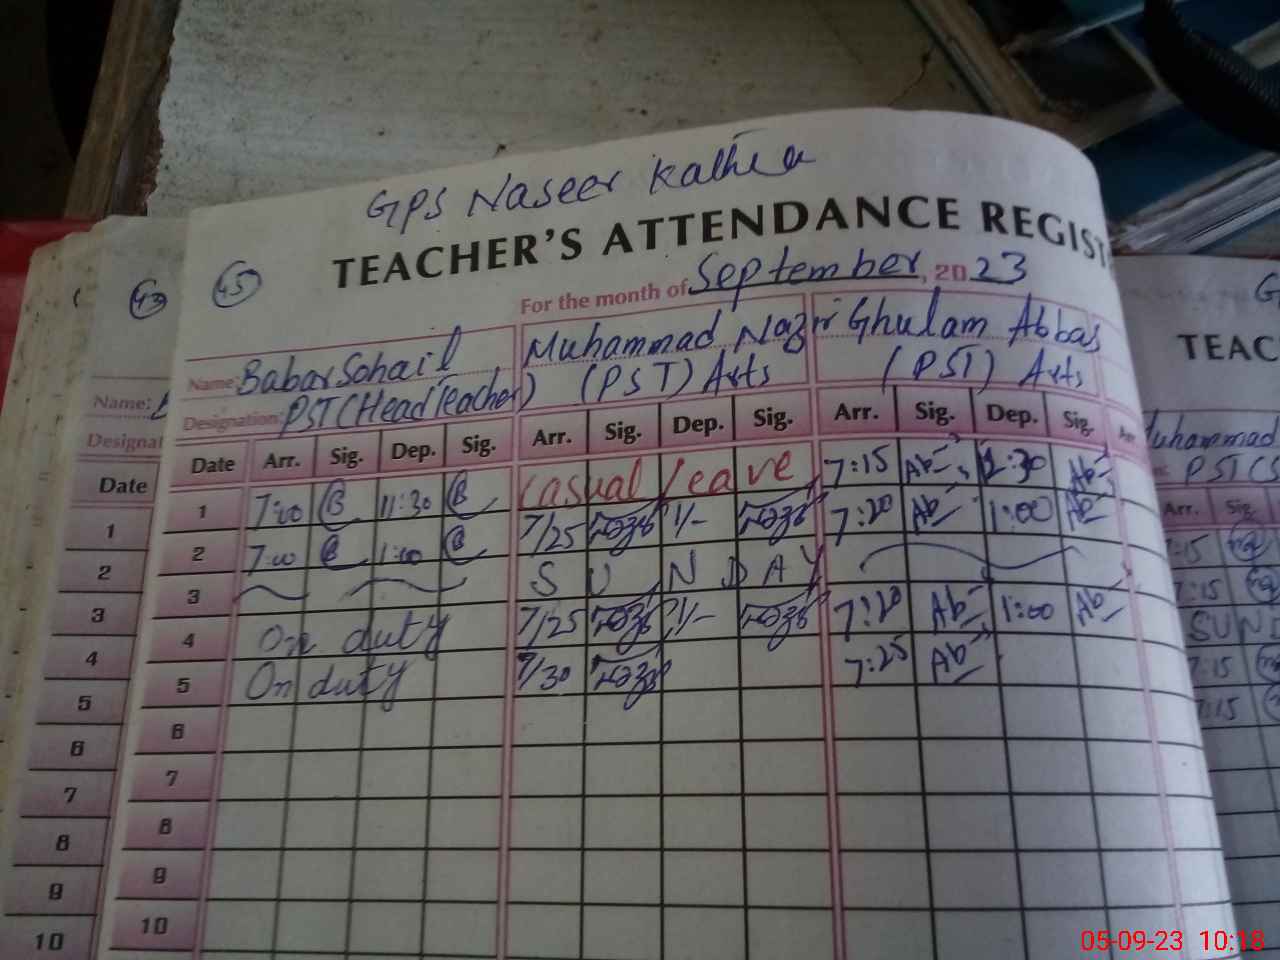 GPS Naseer Kathia
TEACHER'S ATTENDANCE REGIST
45
For the month of September, 2023
Name: Babar Sohail Muhammad Nazir Ghulam Abbas
Designation: PST (Head Teacher) (PST) Arts (PST) Arts
Date Arr. Sig. Dep. Sig. Arr. Sig. Dep. Sig. Arr. Sig. Dep. Sig. Arr
1 7:00 B 11:30 B Casual leave 7:15 Ab 12:30 Ab
2 7:00 B 1:00 B 7/25 1/- 7:20 Ab 1:00 Ab
3 SUNDAY
4 On duty 7/25 1/- 7:20 Ab 1:00 Ab
5 On duty 7/30 7:25 Ab
6
7
8
9
10
43
Name:
Designat
Date
1
2
3
4
5
6
7
8
9
10
G
TEAC
Muhammad
PST(S
Arr. Sig.
7:15
7:15
SUND
7:15
7:15
05-09-23 10:18